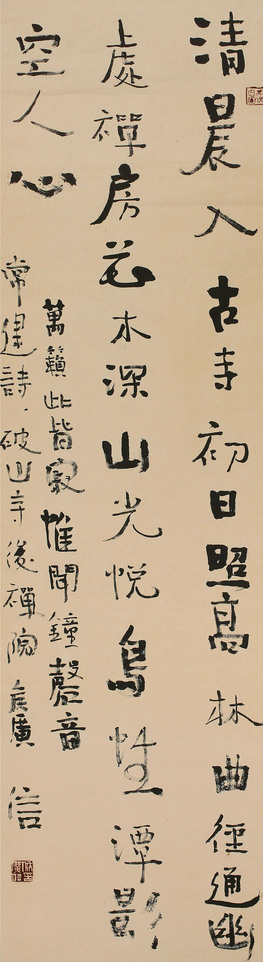 清晨入古寺初日照高林曲徑通幽
處禪房花木深山光悅鳥性潭影
空人心
萬籟此皆寂惟聞鐘磬音
常建詩·破山寺後禪院 廣信